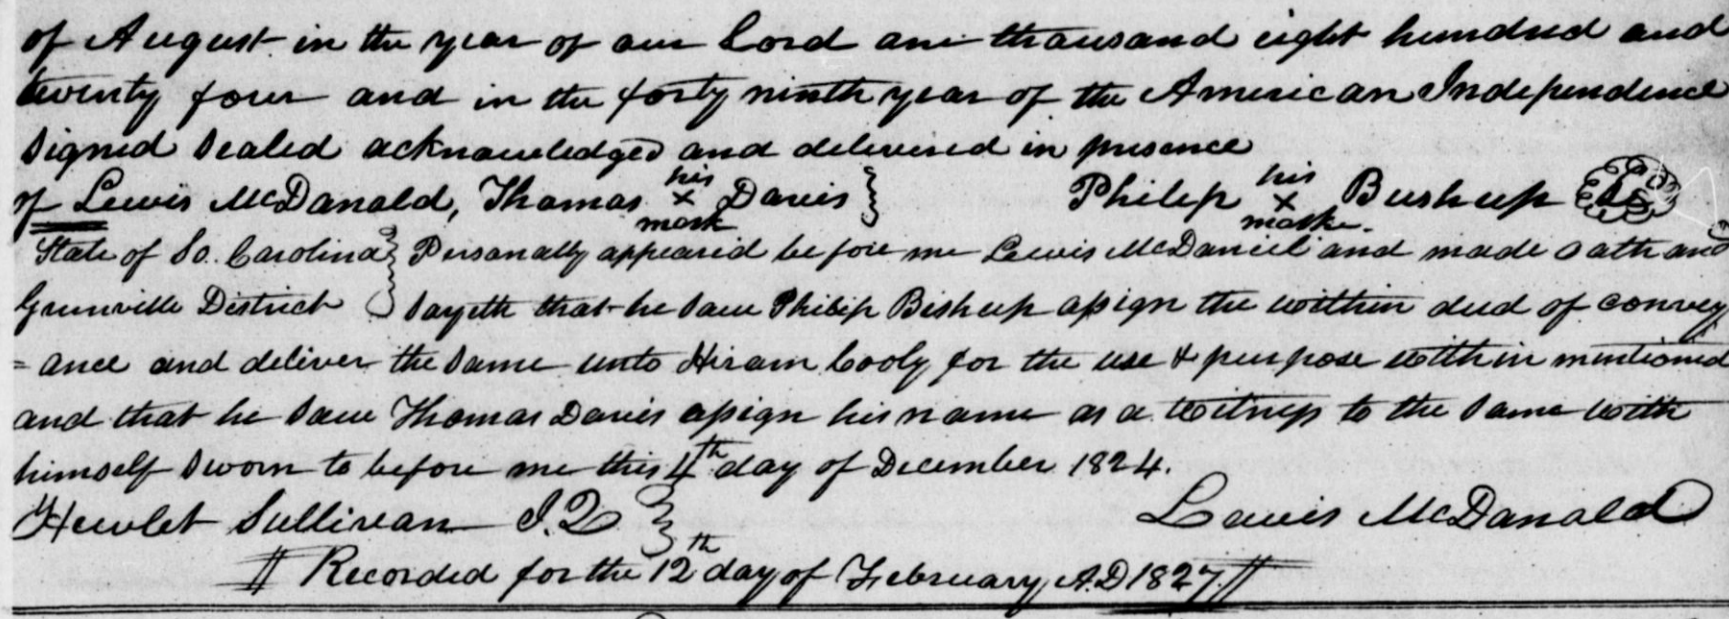 of August in the year of our Lord one thousand eight hundred and
twenty four and in the forty ninth year of the American Independence
Signed Sealed acknowledged and delivered in presence
of Lewis McDonald, Thomas his x mark Davis } Philip his x mark Bushup LS
State of So. Carolina } Personally appeared before me Lewis McDaniel and made oath and
Greenville District } Sayeth that he saw Philip Bishup assign the within deed of convey
= ance and deliver the same unto Hiram Cooly for the use & purpose within mentioned
and that he saw Thomas Davis assign his name as a witness to the same with
himself Sworn to before me this 4th day of December 1824.
Hewlet Sullivan J.Q } Lewis McDanald
Recorded for the 12th day of February A.D 1827